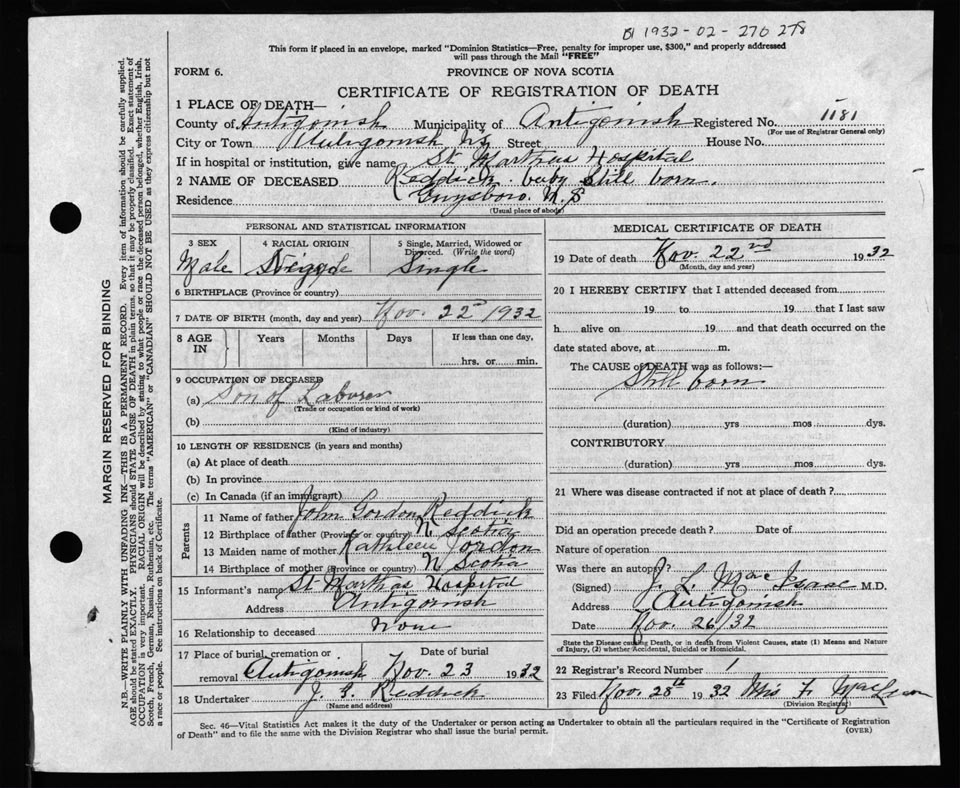 B 1932-02-270278
This form if placed in an envelope, marked "Dominion Statistics—Free, penalty for improper use, $300," and properly addressed
will pass through the Mail "FREE"
FORM 6. PROVINCE OF NOVA SCOTIA
CERTIFICATE OF REGISTRATION OF DEATH
1 PLACE OF DEATH—
County of Antigonish Municipality of Antigonish Registered No. 1181
(For use of Registrar General only)
City or Town Antigonish N.S. Street House No.
If in hospital or institution, give name St Marthas Hospital
2 NAME OF DECEASED Reddick baby Still born.
Residence Guysboro. N.S
(Usual place of abode)
PERSONAL AND STATISTICAL INFORMATION
3 SEX 4 RACIAL ORIGIN 5 Single, Married, Widowed or
Divorced. (Write the word)
Male Single
6 BIRTHPLACE (Province or country)
7 DATE OF BIRTH (month, day and year) Nov. 22 1932
8 AGE IN Years Months Days If less than one day,
hrs. or min.
9 OCCUPATION OF DECEASED
(a) Son of Laborer
(Trade or occupation or kind of work)
(b)
(Kind of industry)
10 LENGTH OF RESIDENCE (in years and months)
(a) At place of death
(b) In province
(c) In Canada (if an immigrant)
Parents
11 Name of father John Gordon Reddick
12 Birthplace of father (Province or country) N Scotia
13 Maiden name of mother Kathleen Jordon
14 Birthplace of mother (Province or country) N Scotia
15 Informant's name St Marthas Hospital
Address Antigonish
16 Relationship to deceased None
17 Place of burial, cremation or Date of burial
removal Antigonish Nov 23 1932
18 Undertaker J. G. Reddick
(Name and address)
MEDICAL CERTIFICATE OF DEATH
19 Date of death Nov. 22nd 1932
(Month, day and year)
20 I HEREBY CERTIFY that I attended deceased from
19 to 19 that I last saw
h alive on 19 and that death occurred on the
date stated above, at m.
The CAUSE of DEATH was as follows:—
Still born
(duration) yrs mos dys.
CONTRIBUTORY
(duration) yrs mos. dys.
21 Where was disease contracted if not at place of death?
Did an operation precede death? Date of
Nature of operation
Was there an autopsy?
(Signed) J. L. MacIsaac M.D.
Address Antigonish
Date Nov. 26/32
State the Disease causing Death, or in death from Violent Causes, state (1) Means and Nature
of Injury, (2) whether Accidental, Suicidal or Homicidal.
22 Registrar's Record Number 1
23 Filed Nov. 28th 1932
(Division Registrar)
Sec. 46—Vital Statistics Act makes it the duty of the Undertaker or person acting as Undertaker to obtain all the particulars required in the "Certificate of Registration
of Death" and to file the same with the Division Registrar who shall issue the burial permit. (OVER)
MARGIN RESERVED FOR BINDING
N.B.—WRITE PLAINLY WITH UNFADING INK—THIS IS A PERMANENT RECORD. Every item of information should be carefully supplied.
AGE should be stated EXACTLY. PHYSICIANS should STATE CAUSE OF DEATH in plain terms, so that it may be properly classified. Exact statement of
OCCUPATION is very important. RACIAL ORIGIN will be described by stating to what people or race the deceased person belonged, whether English, Irish,
Scotch, French, German, Russian, Ruthenian, etc. The terms "AMERICAN" or "CANADIAN" SHOULD NOT BE USED as they express citizenship but not
a race or people. See instructions on back of Certificate.